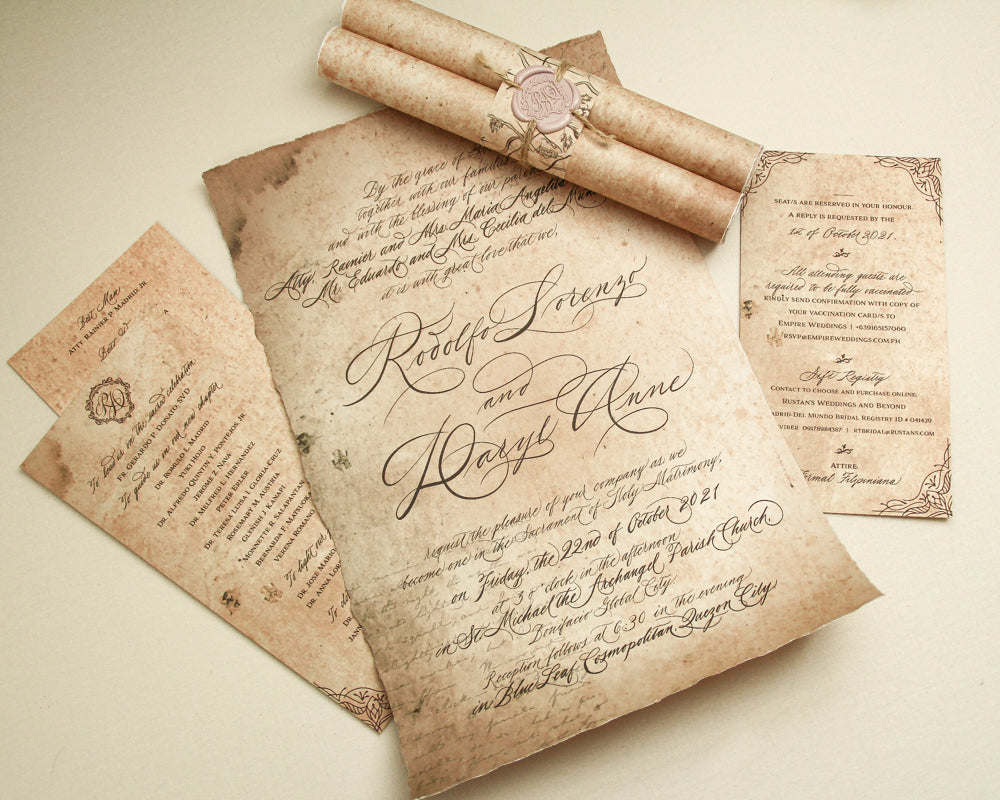 By the grace of
together with our families
and with the blessing of our parents
Atty. Rainier and Mrs. Maria Angelita
Mr. Eduardo and Mrs. Cecilia del Mundo
it is with great love that we,
Rodolfo Lorenzo
and
Daryl Anne
request the pleasure of your company as we
become one in the Sacrament of Holy Matrimony,
on Friday, the 22nd of October 2021
at 3 o'clock in the afternoon
in St. Michael the Archangel Parish Church
Bonifacio Global City
Reception follows at 6:30 in the evening
in Blue Leaf Cosmopolitan Quezon City
Best Man
Atty Rainier P. Madrid, Jr.
Best
To lead us in the sacred celebration
Fr. Gerardo F. Donato, SVD
To guide us in our new chapter
Dr. Romulo L. Madrid
Yuki Hojo
Dr. Alfredo Quintin Y. Pontejos Jr.
Jerome Z. Nava
Dr. Melfred L. Hernandez
Peter Eisler
Dr. Theresa Luisa I. Gloria-Cruz
Glenish J. Kanani
Rosemary M. Austria
Monnette R. Salapantan
Bernarda F.
Verena
To light our
Dr. Jose Mario
Dr. Anna
To
seat/s are reserved in your honour.
A reply is requested by the
1st of October 2021.
All attending guests are
required to be fully vaccinated
kindly send confirmation with copy of
your vaccination card/s to
Empire Weddings | +639165157060
RSVP@empireweddings.com.ph
Gift Registry
Contact to choose and purchase online:
Rustan's Weddings and Beyond
Madrid-Del Mundo Bridal Registry ID # 041429
Viber 09178984387 | rtbridal@rustans.com
Attire:
Formal Filipiniana